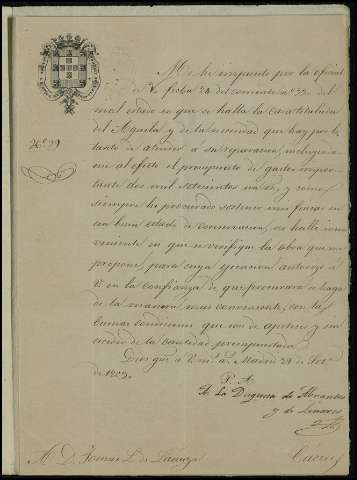 Me he impuesto por la oficial
de V. fecha 24 del corriente nº 39 del
mal estado en que se halla la Casa titulada
del Aguila y de la necesidad que hay por lo
tanto de atender a su reparacion, incluyendo
me al efecto el presupuesto de gastos impor
tante dos mil setecientos
siempre he procurado sostener mis fincas en
un buen estado de conservacion, no hallo incon
veniente en que se verifique la obra que me
propone, para cuya ejecucion autorizo á
V. en la confianza de que procurará se haga
de la manera mas conveniente, con las
buenas condiciones que son de apetecer y sin
exceder de la cantidad presupuestada.
Dios gue á V. m. a. Madrid 29 de
de 1863.
Nº 39
P. A.
La Duquesa de Abrantes
y de Linares
D. Tomas L. de
Caceres